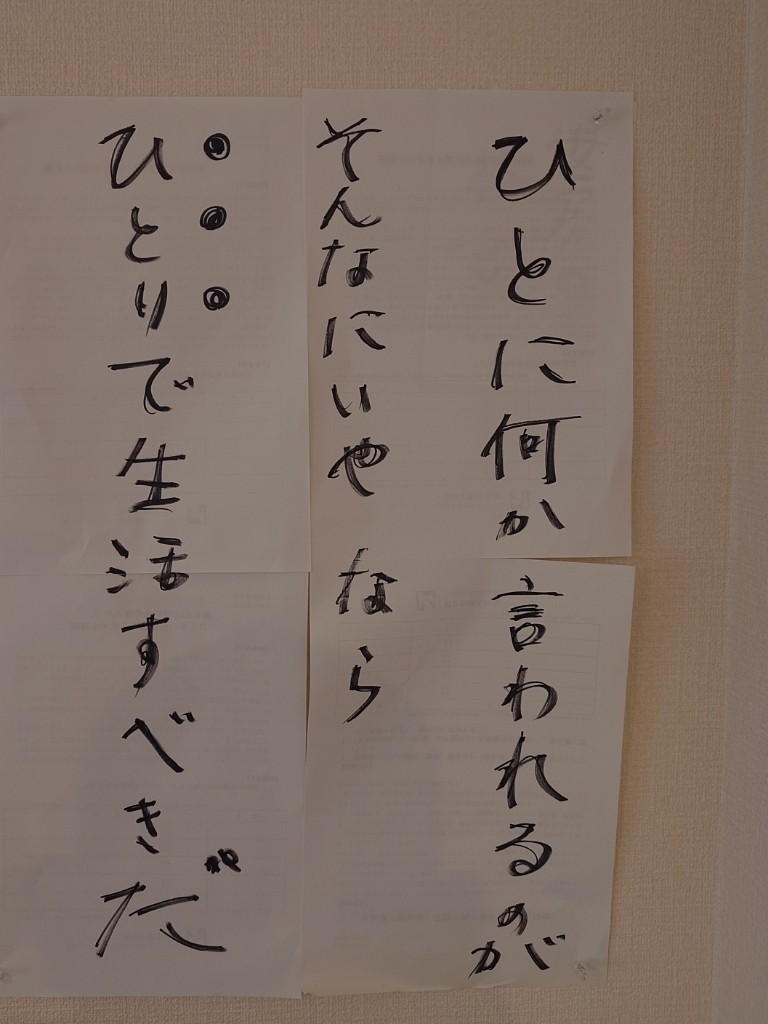 ひとに何か言われるのが
そんなにいやなら
ひとりで生活すべきだ